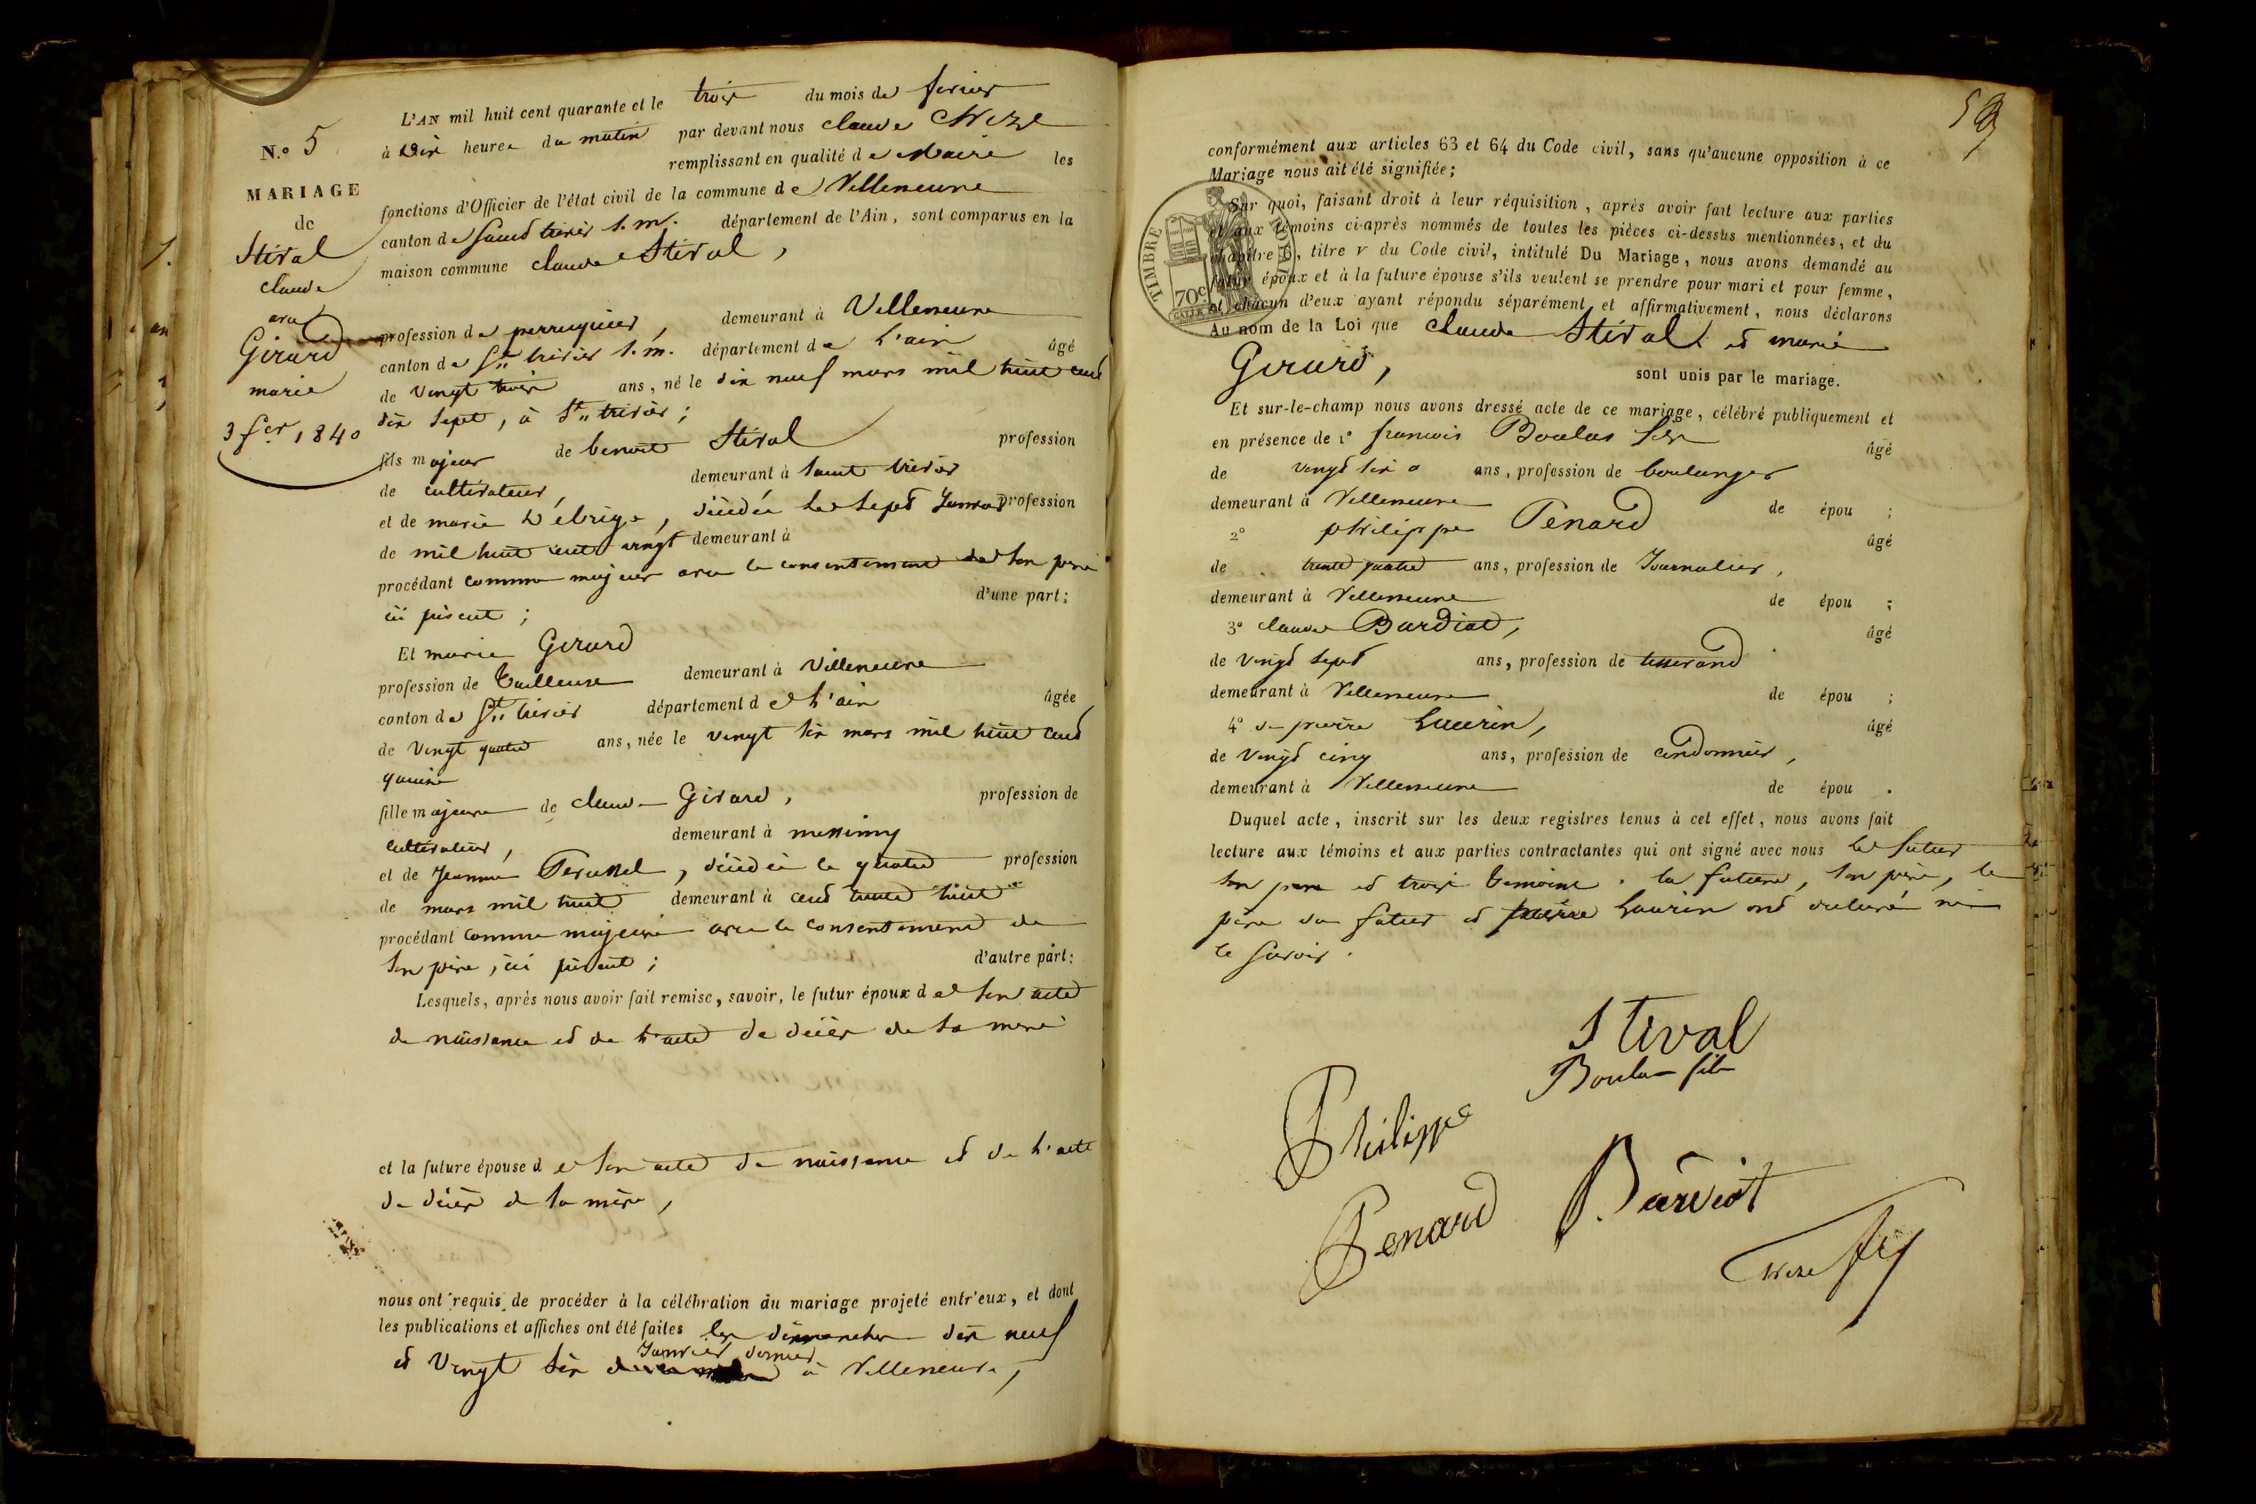 N.° 5
MARIAGE
de
Stival
claude
avec
Girard
marie
3 fer 1840
L'AN mil huit cent quarante et le trois du mois de fevrier
à dix heures du matin par devant nous claude Chize
remplissant en qualité de Maire les
fonctions d'Officier de l'état civil de la commune de Villeneuve
canton de Saint trivier s. m. département de l'Ain, sont comparus en la
maison commune claude Stival,
profession de perruquier, demeurant à Villeneuve
canton de St trivier s. m. département de l'ain âgé
de vingt trois ans, né le dix neuf mars mil huit cent
dix sept, à St trivier;
fils majeur de benoit Stival profession
de cultivateur, demeurant à Saint trivier
et de marie Débrige, décédée le sept Janvier profession
de mil huit cent vingt demeurant à
procédant comme majeur avec le consentement de son père
ici présent; d'une part;
Et marie Girard
profession de Tailleuse demeurant à Villeneuve
canton de St trivier département de l'ain âgée
de vingt quatre ans, née le vingt six mars mil huit cent
quinze
fille majeure de claude Girard, profession de
cultivateur, demeurant à messimy
et de Jeanne Perussel, décédée le quatre profession
de mars mil huit demeurant à cent trente huit
procédant comme majeure avec le consentement de
son père, ici présent; d'autre part:
Lesquels, après nous avoir fait remise, savoir, le futur époux de son acte
de naissance et de l'acte de décès de sa mère
et la future épouse de son acte de naissance et de l'acte
de décès de sa mère,
nous ont requis de procéder à la célébration du mariage projeté entr'eux, et dont
les publications et affiches ont été faites les dimanches dix neuf
Janvier dernier
et vingt six à Villeneuve,
59
conformément aux articles 63 et 64 du Code civil, sans qu'aucune opposition à ce
Mariage nous ait été signifiée;
Sur quoi, faisant droit à leur réquisition, après avoir fait lecture aux parties
et aux témoins ci-après nommés de toutes les pièces ci-dessus mentionnées, et du
chapitre 6, titre V du Code civil, intitulé Du Mariage, nous avons demandé au
futur époux et à la future épouse s'ils veulent se prendre pour mari et pour femme,
et chacun d'eux ayant répondu séparément et affirmativement, nous déclarons
TIMBRE ROYAL
70c
Au nom de la Loi que claude Stival et marie
Girard, sont unis par le mariage.
Et sur-le-champ nous avons dressé acte de ce mariage, célébré publiquement et
en présence de 1° francois Boulas fils âgé
de vingt six ans, profession de boulanger
demeurant à Villeneuve de épou ;
2° philippe Penard âgé
de trente quatre ans, profession de Journalier,
demeurant à Villeneuve de épou ;
3° claude Bardiot, âgé
de vingt sept ans, profession de tisserand
demeurant à Villeneuve de épou ;
4° pierre Laurin, âgé
de vingt cinq ans, profession de cordonnier,
demeurant à Villeneuve de épou .
Duquel acte, inscrit sur les deux registres tenus à cet effet, nous avons fait
lecture aux témoins et aux parties contractantes qui ont signé avec nous le futur
et trois temoins . la future, son père, le
père du futur et pierre Laurin ont déclaré ne
le savoir.
Stival
Boulas fils
Philippe
Penard
Bardiot
Chize